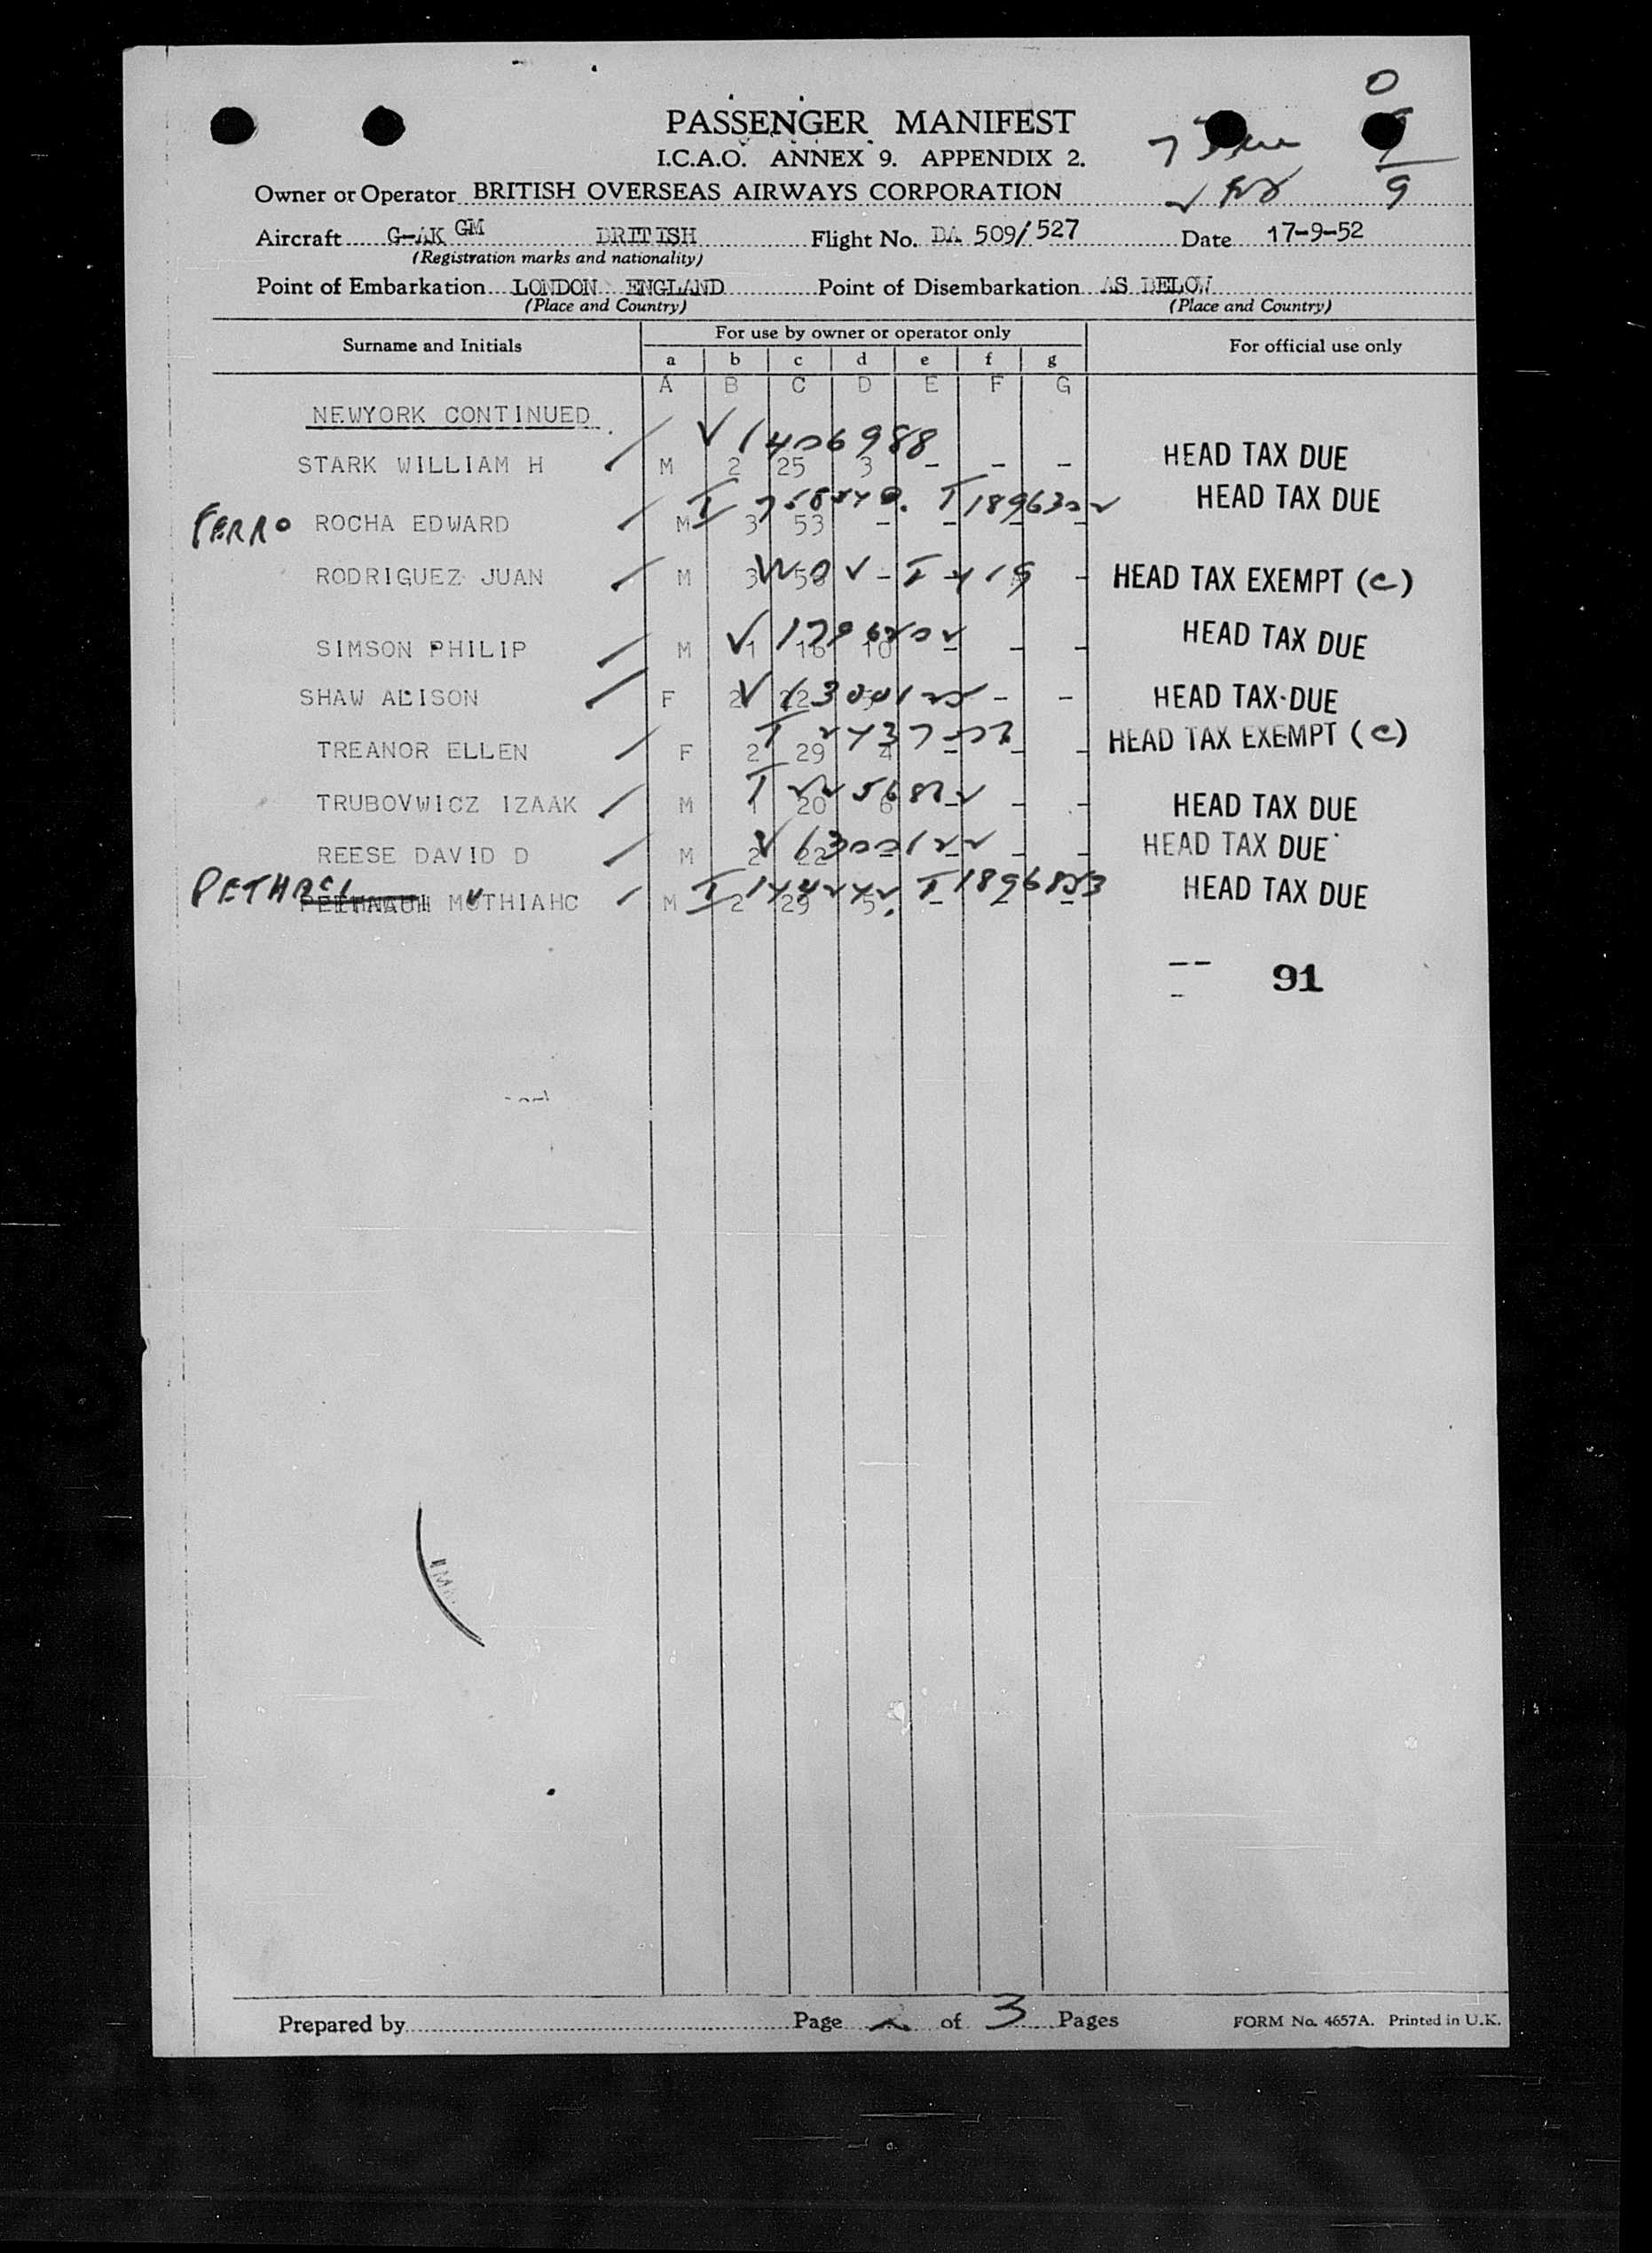 PASSENGER MANIFEST
I.C.A.O. ANNEX 9. APPENDIX 2.
Owner or Operator BRITISH OVERSEAS AIRWAYS CORPORATION
Aircraft G-AK GM BRITISH Flight No. BA 509/527 Date 17-9-52
(Registration marks and nationality)
Point of Embarkation LONDON ENGLAND Point of Disembarkation AS BELOW
(Place and Country) (Place and Country)
Surname and Initials For use by owner or operator only For official use only
a b c d e f g
A B C D E F G
NEWYORK CONTINUED
√ 1406988
STARK WILLIAM H M 2 25 3 - - - HEAD TAX DUE
FERRO ROCHA EDWARD M 3 53 - - - - HEAD TAX DUE
RODRIGUEZ JUAN M 3 - - HEAD TAX EXEMPT (C)
SIMSON PHILIP M 1 16 10 - - - HEAD TAX DUE
SHAW ALISON F 2 22 - - HEAD TAX DUE
TREANOR ELLEN F 2 29 4 - - - HEAD TAX EXEMPT (C)
TRUBOVWICZ IZAAK M 1 20 6 - - - HEAD TAX DUE
REESE DAVID D M 2 22 - - - - HEAD TAX DUE
MUTHIAHC M 2 29 5 - - - HEAD TAX DUE
91
Prepared by Page of 3 Pages FORM No. 4657A. Printed in U.K.